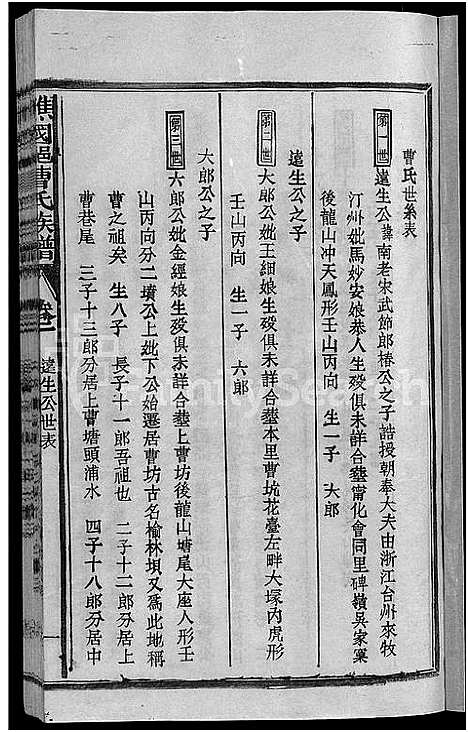 曹氏世系表
第一世
遠生公諱南老宋武節郎椿公之子誥授朝奉大夫由浙江台州來牧
汀州妣馬妙安娘恭人生殁俱未詳合塟甯化會同里碑嶺吳家窠
後龍山冲天鳳形壬山丙向 生一子 大郎
遠生公之子
第二世
大郎公妣王細娘生殁俱未詳合塟本里曹坑花臺左畔大塚丙虎形
壬山丙向 生一子 六郎
大郎公之子
第三世
六郎公妣金經娘生殁俱未詳合塟上曹坊後龍山塘尾大座人形壬
山丙向分二墳公上妣下公始遷居曹坊古名榆林埧又爲此地稱
曹之祖矣 生八子 長子十一郎吾祖也 二子十二郎分居上
曹巷尾 三子十三郎分居上曹塘頭浦水 四子十八郎分居中
譙國郡曹氏族譜
卷二
遠生公世表
一
FamilySearch